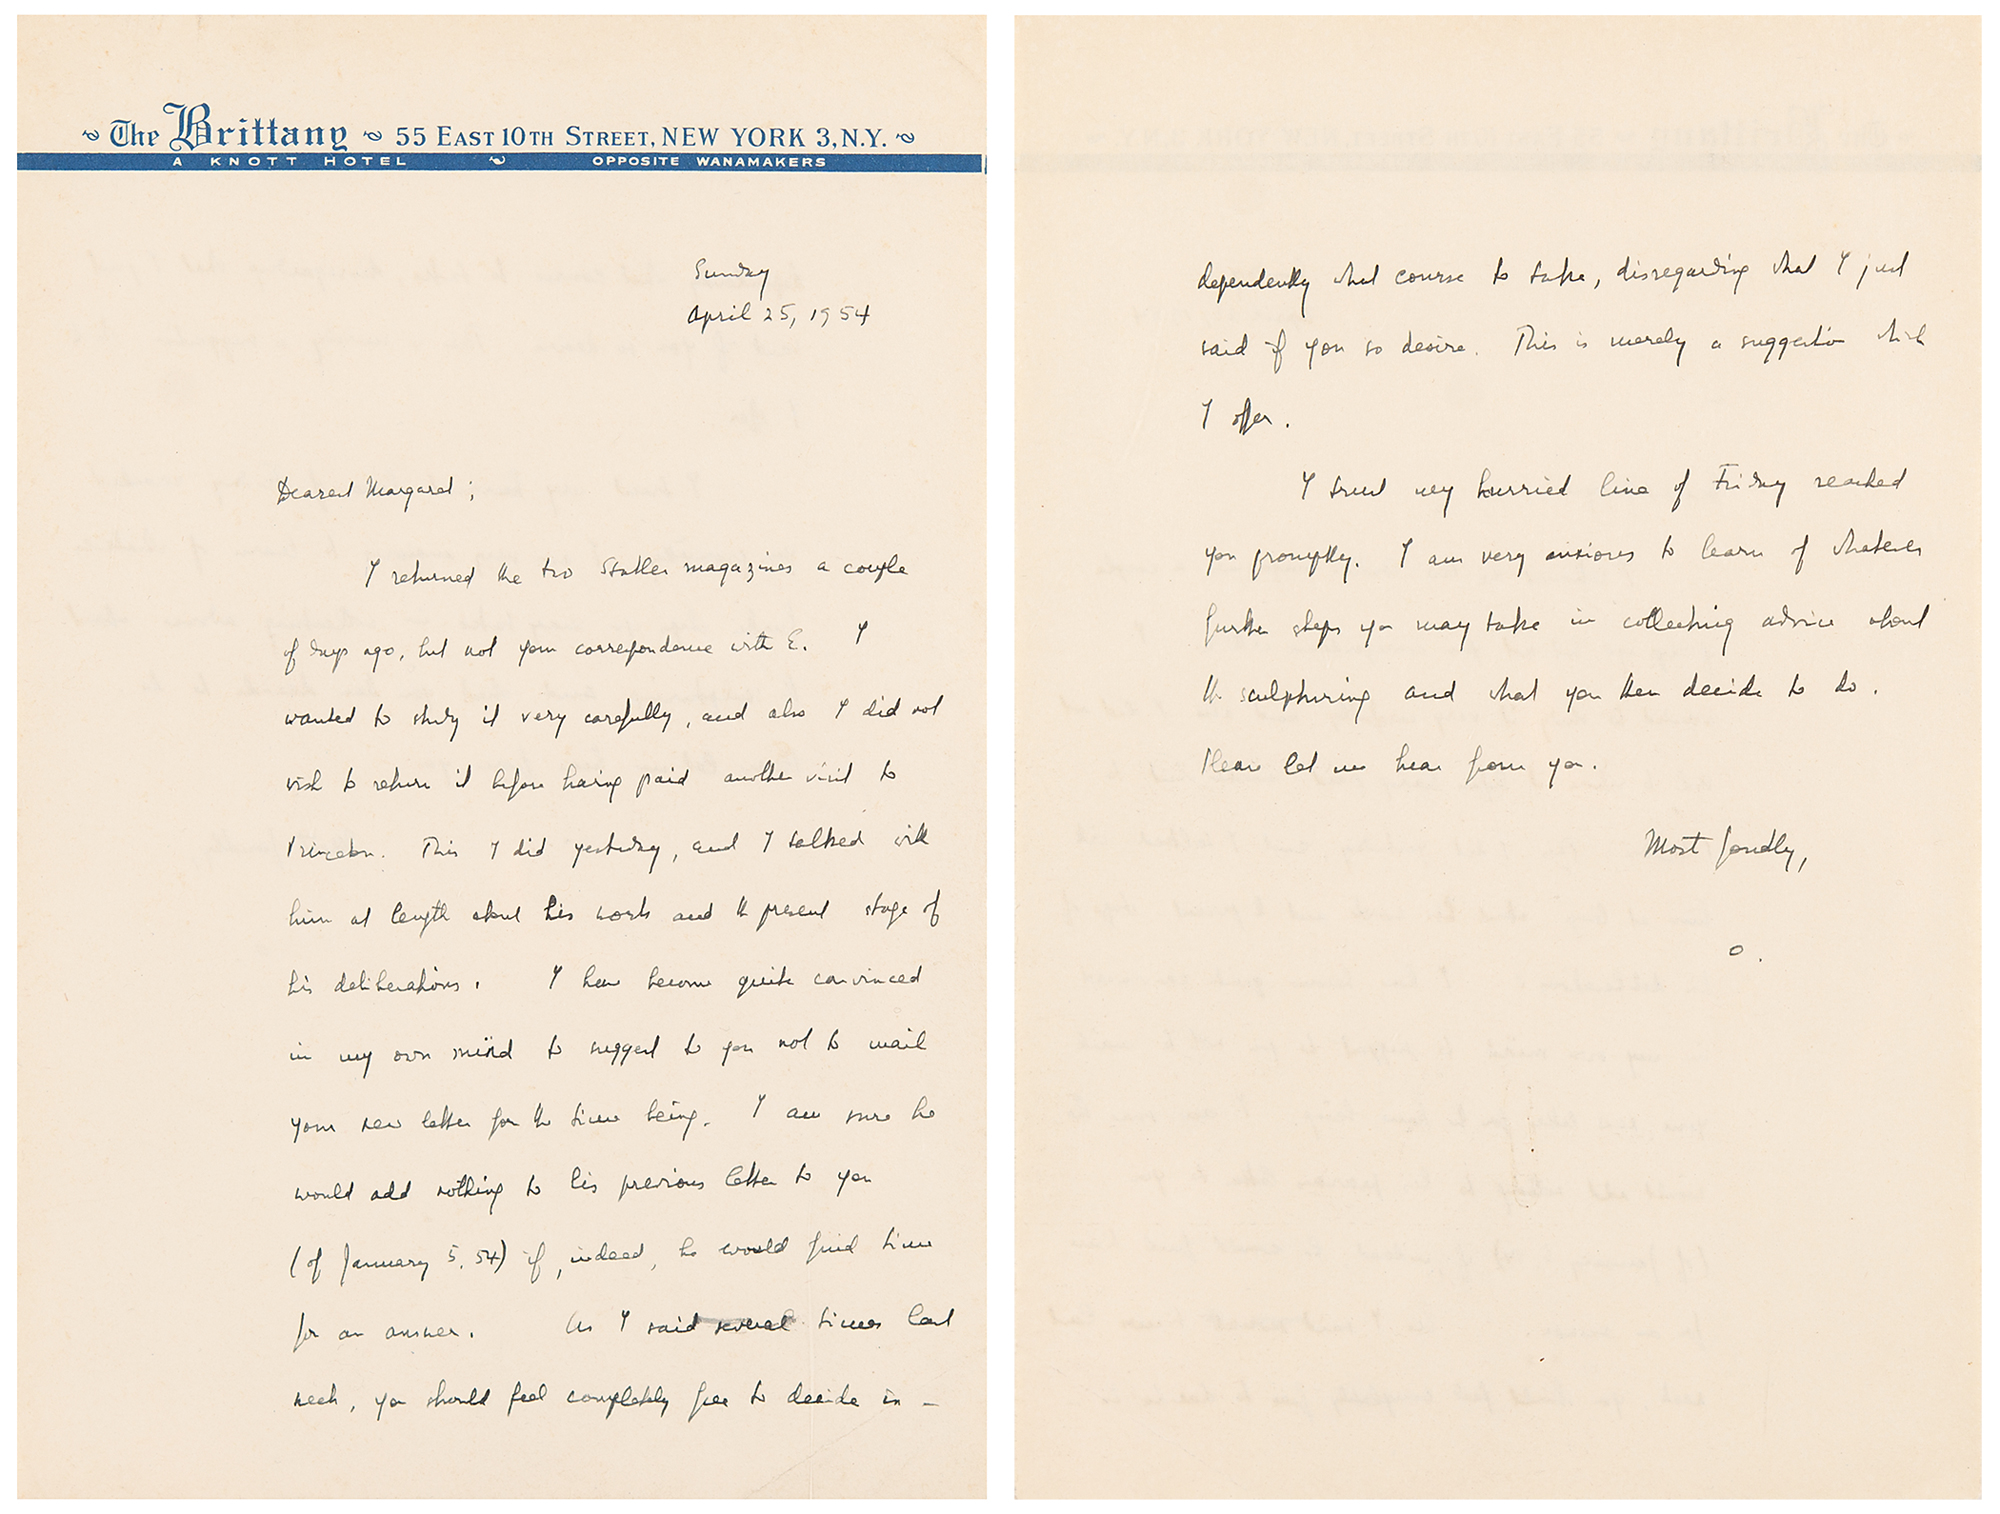 The Brittany 55 EAST 10TH STREET, NEW YORK 3, N.Y.
A KNOTT HOTEL OPPOSITE WANAMAKERS
Sunday
April 25, 1954
Dearest Margaret;
I returned the two Statler magazines a couple
of days ago, but not your correspondence with E. I
wanted to study it very carefully, and also I did not
wish to return it before having paid another visit to
Princeton. This I did yesterday, and I talked with
him at length about his work and the present stage of
his deliberations. I have become quite convinced
in my own mind to suggest to you not to mail
your new letter for the time being. I am sure he
would add nothing to his previous letter to you
(of January 5, 54) if, indeed, he would find time
for an answer. As I said several times last
week, you should feel completely free to decide in-
dependently what course to take, disregarding what I just
said if you so desire. This is merely a suggestion which
I offer.
I trust my hurried line of Friday reached
you promptly. I am very anxious to learn of whatever
further steps you may take in collecting advice about
the sculpturing and what you then decide to do.
Please let me hear from you.
Most fondly,
O.